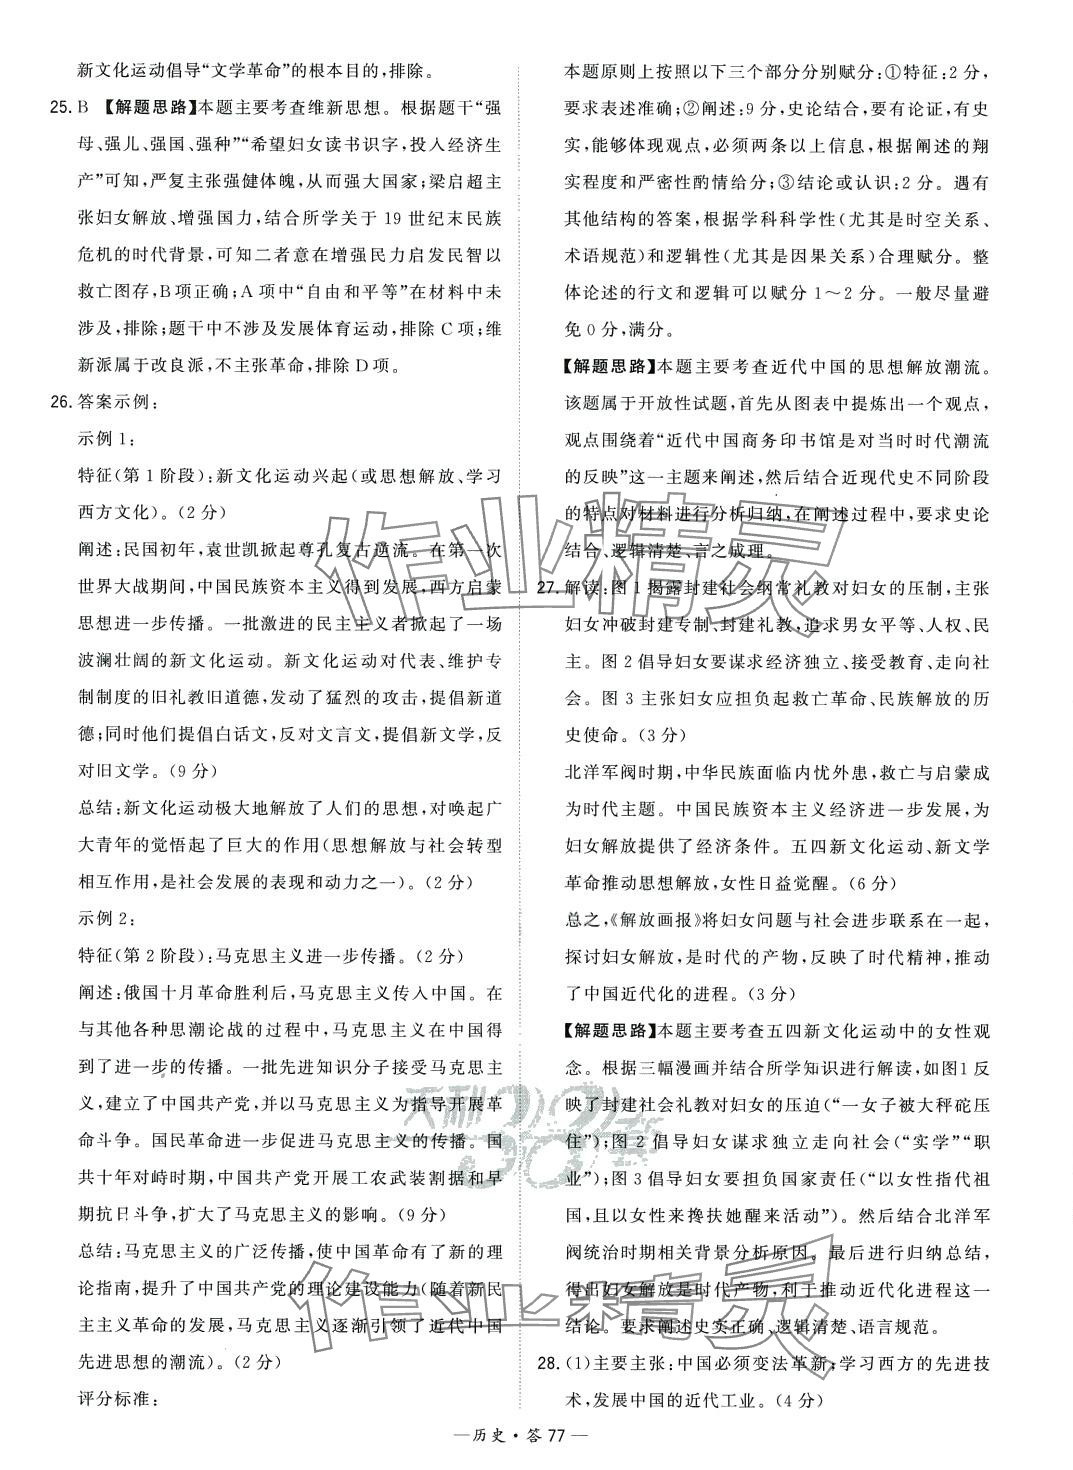 新文化运动倡导“文学革命”的根本目的,排除。
25. B 【解题思路】本题主要考查维新思想。根据题干“强
母、强儿、强国、强种”“希望妇女读书识字,投入经济生
产”可知,严复主张强健体魄,从而强大国家;梁启超主
张妇女解放、增强国力,结合所学关于 19 世纪末民族
危机的时代背景,可知二者意在增强民力启发民智以
救亡图存,B项正确;A 项中“自由和平等”在材料中未
涉及,排除;题干中不涉及发展体育运动,排除C项;维
新派属于改良派,不主张革命,排除D项。
26. 答案示例:
示例 1:
特征(第 1 阶段):新文化运动兴起(或思想解放、学习
西方文化)。(2 分)
阐述:民国初年,袁世凯掀起尊孔复古逆流。在第一次
世界大战期间,中国民族资本主义得到发展,西方启蒙
思想进一步传播。一批激进的民主主义者掀起了一场
波澜壮阔的新文化运动。新文化运动对代表、维护专
制制度的旧礼教旧道德,发动了猛烈的攻击,提倡新道
德;同时他们提倡白话文,反对文言文,提倡新文学,反
对旧文学。(9 分)
总结:新文化运动极大地解放了人们的思想,对唤起广
大青年的觉悟起了巨大的作用(思想解放与社会转型
相互作用,是社会发展的表现和动力之一)。(2 分)
示例 2:
特征(第 2 阶段):马克思主义进一步传播。(2 分)
阐述:俄国十月革命胜利后,马克思主义传入中国。在
与其他各种思潮论战的过程中,马克思主义在中国得
到了进一步的传播。一批先进知识分子接受马克思主
义,建立了中国共产党,并以马克思主义为指导开展革
命斗争。国民革命进一步促进马克思主义的传播。国
共十年对峙时期,中国共产党开展工农武装割据和早
期抗日斗争,扩大了马克思主义的影响。(9 分)
总结:马克思主义的广泛传播,使中国革命有了新的理
论指南,提升了中国共产党的理论建设能力(随着新民
主主义革命的发展,马克思主义逐渐引领了近代中国
先进思想的潮流)。(2 分)
评分标准:
本题原则上按照以下三个部分分别赋分:①特征:2 分,
要求表述准确;②阐述:9 分,史论结合,要有论证,有史
实,能够体现观点,必须两条以上信息,根据阐述的翔
实程度和严密性酌情给分;③结论或认识:2 分。遇有
其他结构的答案,根据学科科学性(尤其是时空关系、
术语规范)和逻辑性(尤其是因果关系)合理赋分。整
体论述的行文和逻辑可以赋分 1～2 分。一般尽量避
免 0 分,满分。
【解题思路】本题主要考查近代中国的思想解放潮流。
该题属于开放性试题,首先从图表中提炼出一个观点,
观点围绕着“近代中国商务印书馆是对当时时代潮流
的反映”这一主题来阐述,然后结合近现代史不同阶段
的特点对材料进行分析归纳,在阐述过程中,要求史论
结合、逻辑清楚、言之成理。
27. 解读:图 1 揭露封建社会纲常礼教对妇女的压制,主张
妇女冲破封建专制、封建礼教,追求男女平等、人权、民
主。图 2 倡导妇女要谋求经济独立、接受教育、走向社
会。图 3 主张妇女应担负起救亡革命、民族解放的历
史使命。(3 分)
北洋军阀时期,中华民族面临内忧外患,救亡与启蒙成
为时代主题。中国民族资本主义经济进一步发展,为
妇女解放提供了经济条件。五四新文化运动、新文学
革命推动思想解放,女性日益觉醒。(6 分)
总之,《解放画报》将妇女问题与社会进步联系在一起,
探讨妇女解放,是时代的产物,反映了时代精神,推动
了中国近代化的进程。(3 分)
【解题思路】本题主要考查五四新文化运动中的女性观
念。根据三幅漫画并结合所学知识进行解读,如图1反
映了封建社会礼教对妇女的压迫(“一女子被大秤砣压
住”);图 2 倡导妇女谋求独立走向社会(“实学”“职
业”);图 3 倡导妇女要担负国家责任(“以女性指代祖
国,且以女性来搀扶她醒来活动”)。然后结合北洋军
阀统治时期相关背景分析原因。最后进行归纳总结,
得出妇女解放是时代产物,利于推动近代化进程这一
结论。要求阐述史实正确、逻辑清楚、语言规范。
28. (1)主要主张:中国必须变法革新;学习西方的先进技
术,发展中国的近代工业。(4 分)
作业精灵
天利38套
作业精灵
—历史·答 77—